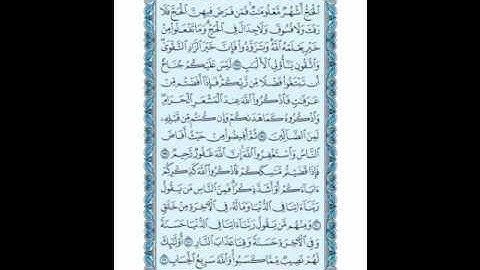 الْحَجُّ أَشْهُرٌ مَّعْلُومَٰتٌ ۚ فَمَن فَرَضَ فِيهِنَّ الْحَجَّ فَلَا
رَفَثَ وَلَا فُسُوقَ وَلَا جِدَالَ فِى الْحَجِّ ۗ وَمَا تَفْعَلُوا۟ مِنْ
خَيْرٍ يَعْلَمْهُ اللَّهُ ۗ وَتَزَوَّدُوا۟ فَإِنَّ خَيْرَ الزَّادِ التَّقْوَىٰ ۚ
وَاتَّقُونِ يَٰٓأُو۟لِى الْأَلْبَٰبِ لَيْسَ عَلَيْكُمْ جُنَاحٌ
أَن تَبْتَغُوا۟ فَضْلًا مِّن رَّبِّكُمْ ۚ فَإِذَآ أَفَضْتُم مِّنْ
عَرَفَٰتٍ فَاذْكُرُوا۟ اللَّهَ عِندَ الْمَشْعَرِ الْحَرَامِ ۖ
وَاذْكُرُوهُ كَمَا هَدَىٰكُمْ وَإِن كُنتُم مِّن قَبْلِهِۦ
لَمِنَ الضَّآلِّينَ ثُمَّ أَفِيضُوا۟ مِنْ حَيْثُ أَفَاضَ
النَّاسُ وَاسْتَغْفِرُوا۟ اللَّهَ ۚ إِنَّ اللَّهَ غَفُورٌ رَّحِيمٌ
فَإِذَا قَضَيْتُم مَّنَٰسِكَكُمْ فَاذْكُرُوا۟ اللَّهَ كَذِكْرِكُمْ
ءَابَآءَكُمْ أَوْ أَشَدَّ ذِكْرًا ۗ فَمِنَ النَّاسِ مَن يَقُولُ
رَبَّنَآ ءَاتِنَا فِى الدُّنْيَا وَمَا لَهُۥ فِى الْءَاخِرَةِ مِنْ خَلَٰقٍ
وَمِنْهُم مَّن يَقُولُ رَبَّنَآ ءَاتِنَا فِى الدُّنْيَا حَسَنَةً
وَفِى الْءَاخِرَةِ حَسَنَةً وَقِنَا عَذَابَ النَّارِ أُو۟لَٰٓئِكَ
لَهُمْ نَصِيبٌ مِّمَّا كَسَبُوا۟ ۚ وَاللَّهُ سَرِيعُ الْحِسَابِ